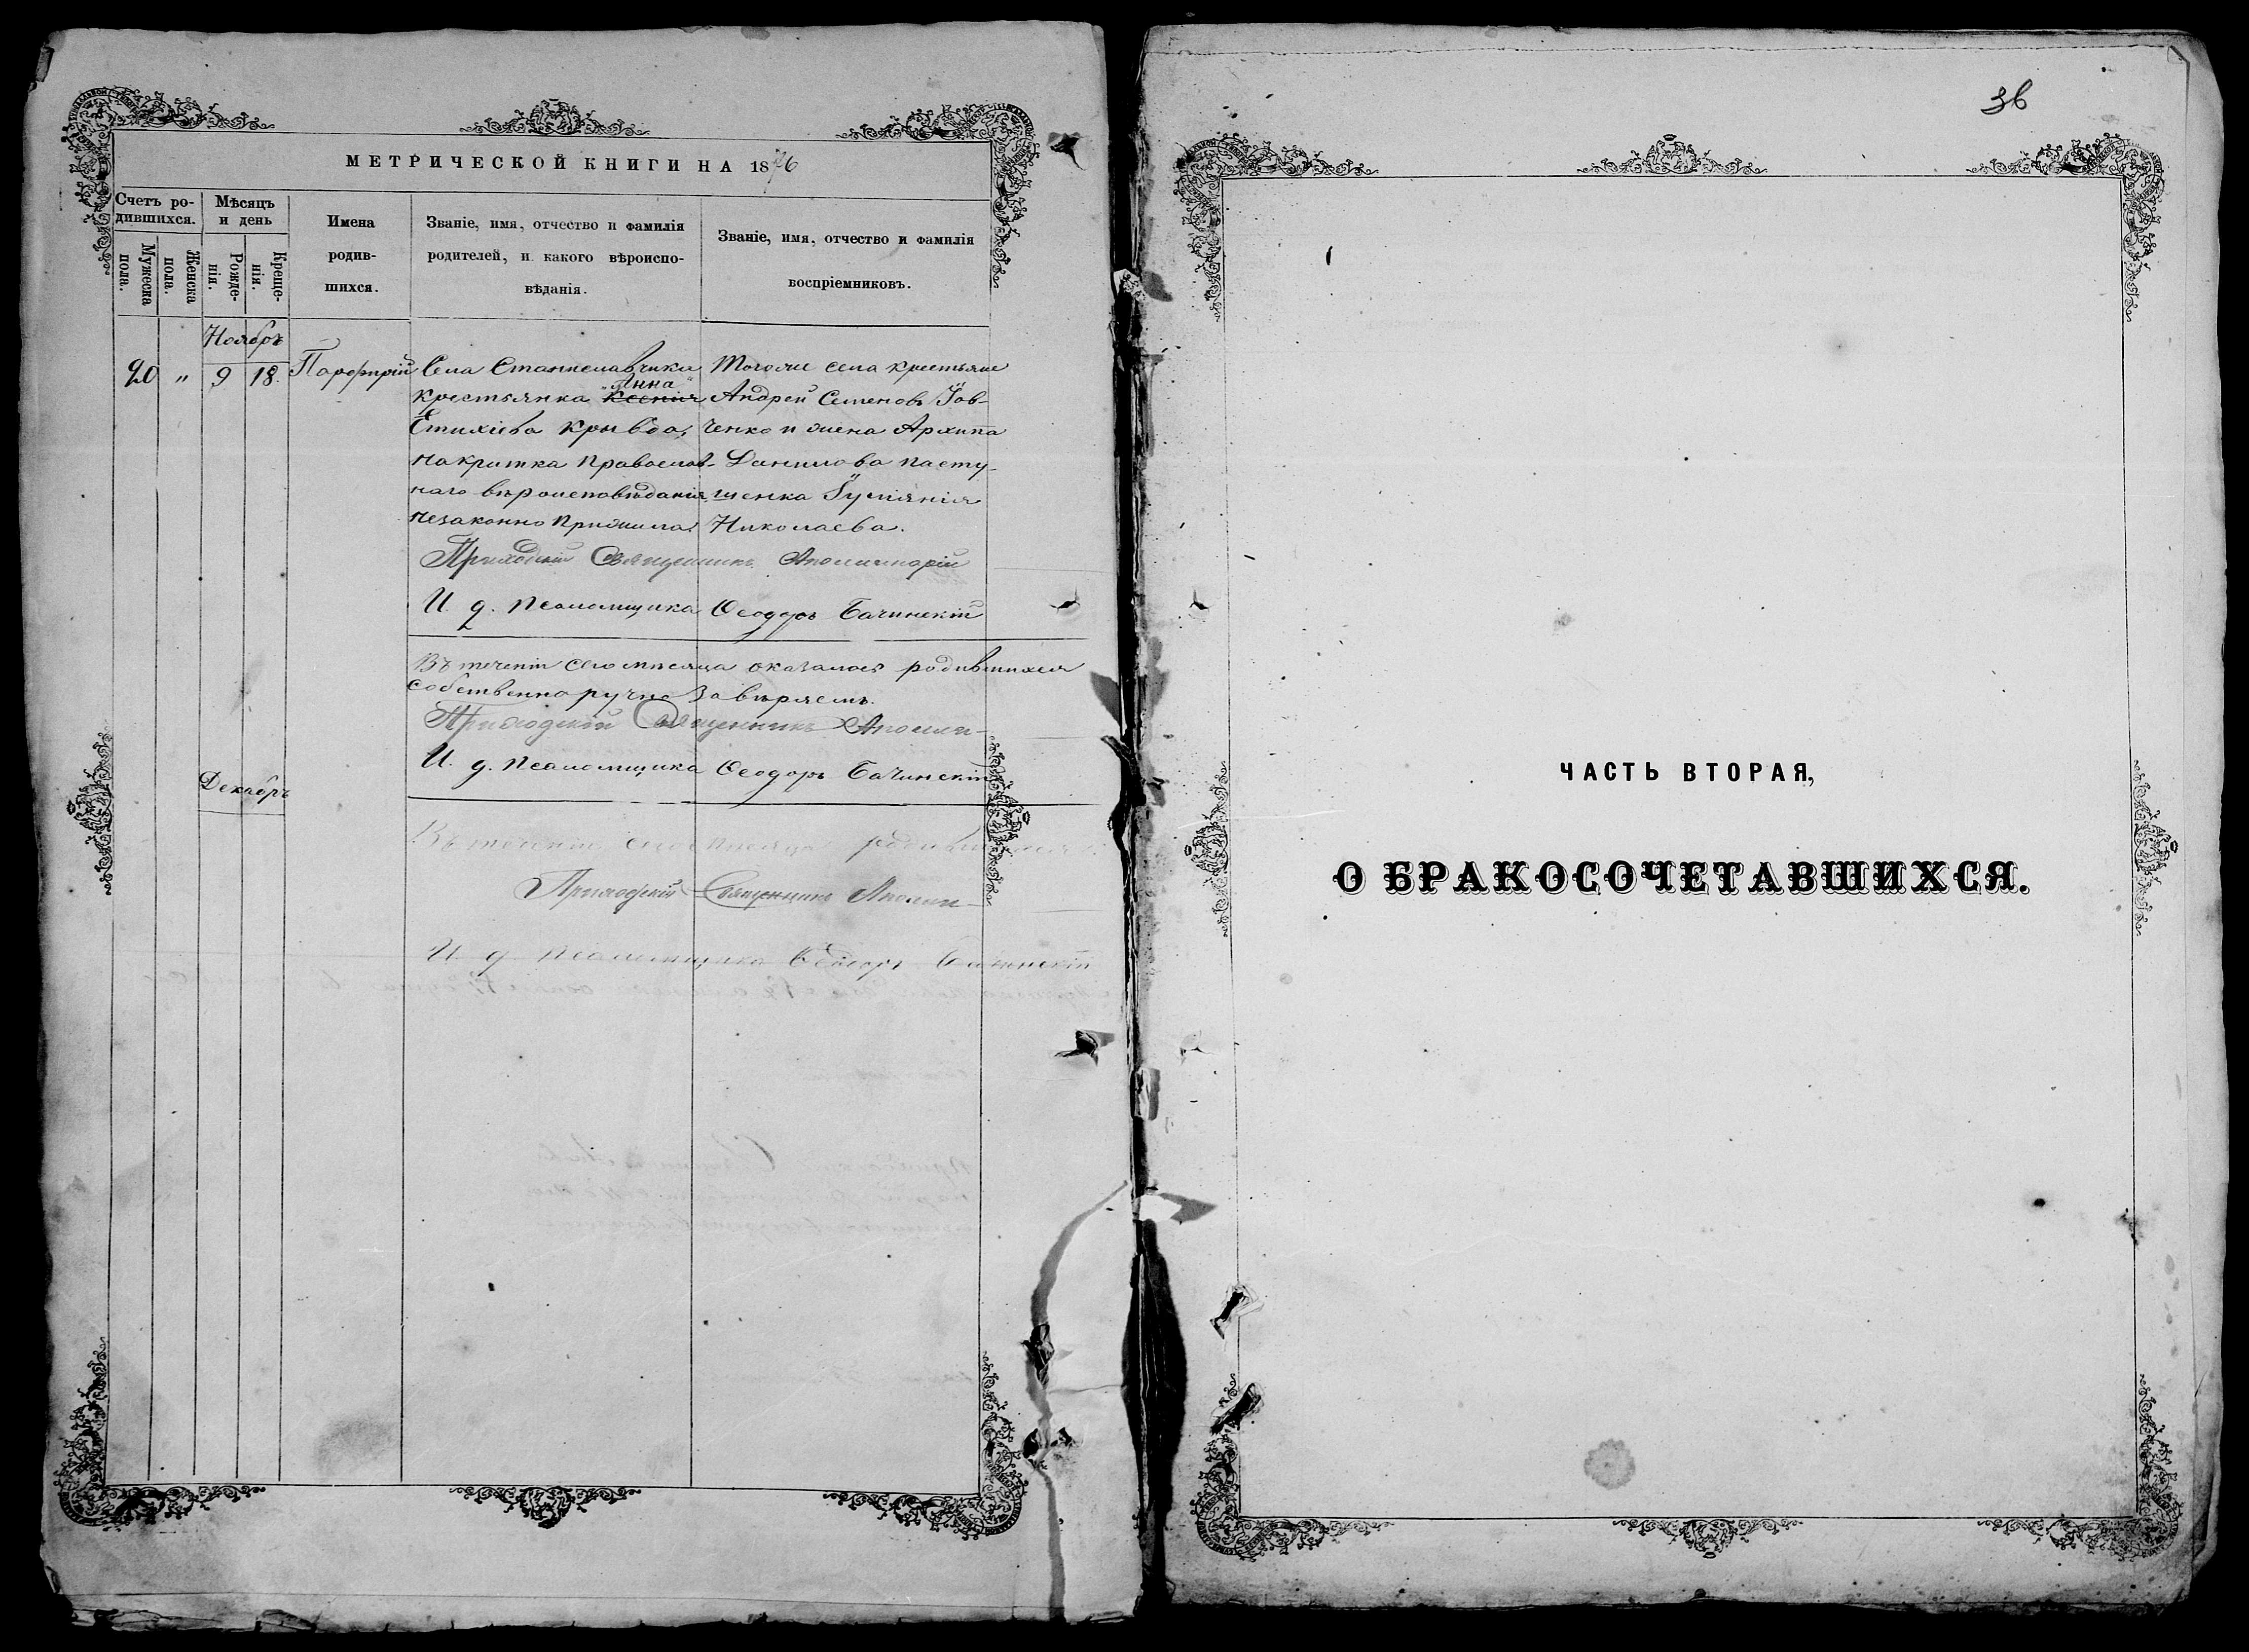 МЕТРИЧЕСКОЙ КНИГИ НА 1876
Счетъ ро-
дившихся.
Мѣсяцъ
и день
Мужеска пола.
Женска пола.
Рожде-
нія.
Креще-
нія.
Имена
родив-
шихся.
Званіе, имя, отчество и фамилія
родителей, и какого вѣроиспо-
вѣданія.
Званіе, имя, отчество и фамилія
воспріемниковъ.
Ноябрь
20 " 9 18. Парфирій
Села Станиславчика
"Анна"
крестьянка Ксенія
Стихіева Крывда,
накритка православ-
наго вѣроисповѣданія
незаконно прижила.
Тогоже села крестьяне
Андрей Семеновъ Іов-
ченко и жена Архипа
Данилова Пасту-
шенка Іуліянія
Николаева.
Приходскій Священникъ Аполинарій
И. д. псаломщика Ѳеодоръ Бачинскій
Въ теченіи сего мѣсяца оказалось родившихся
собственноручно завѣряемъ.
Приходской Священникъ Аполи-
И. д. псаломщика Ѳеодоръ Бачинскій
Декабрь
Въ теченіи сего мѣсяца родившихся
Приходскій Священникъ Аполин-
И. д. псаломщика Ѳеодоръ Бачинскій
36
ЧАСТЬ ВТОРАЯ,
О БРАКОСОЧЕТАВШИХСЯ.